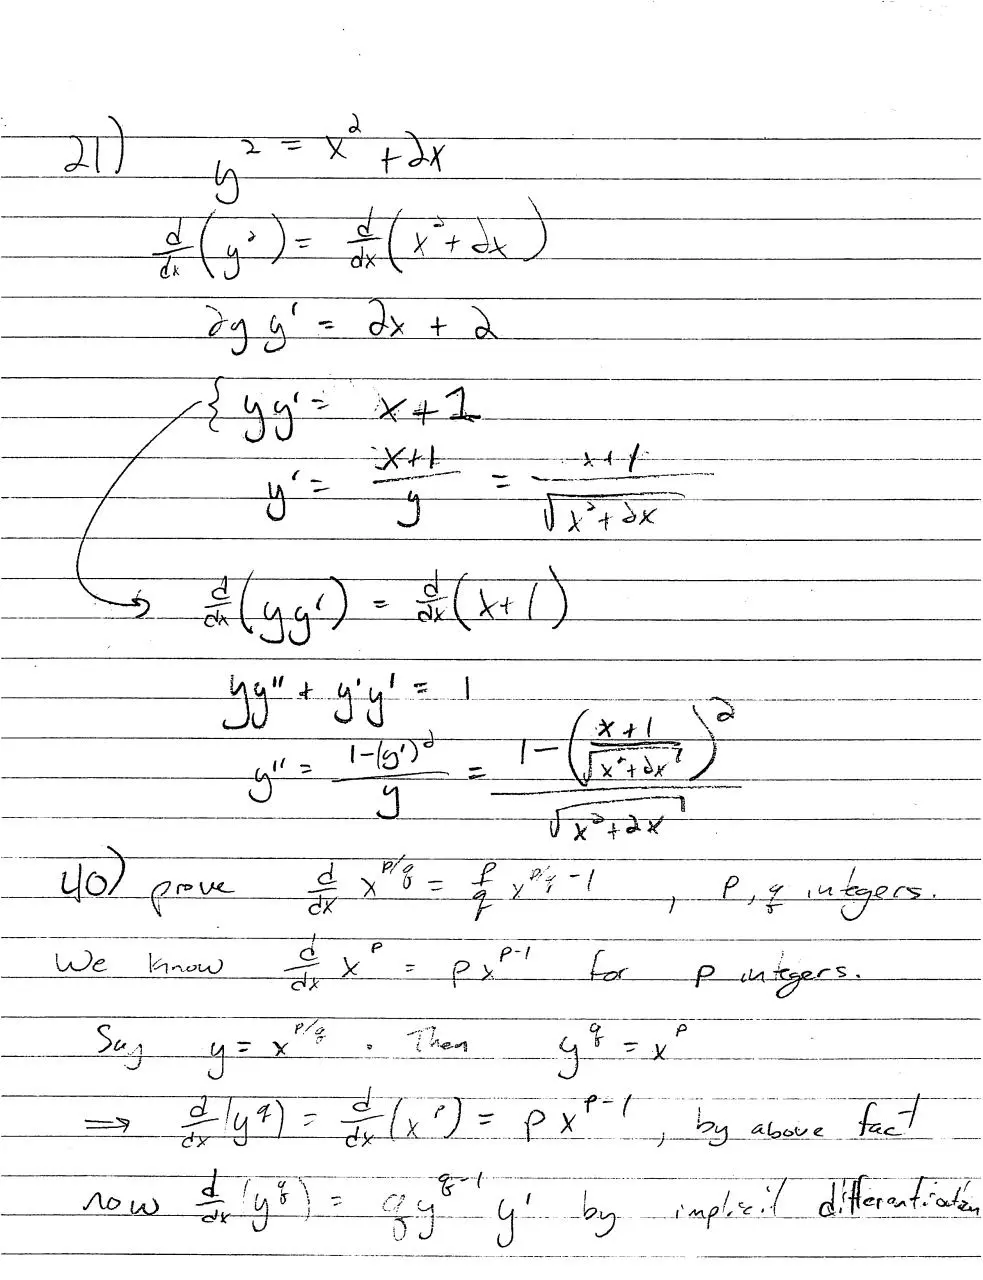 21) y² = x² + 2x
d/dx (y²) = d/dx (x² + 2x)
2y y' = 2x + 2
{ yy' = x + 1
y' = (x+1)/y = (x+1)/√(x²+2x)
d/dx (yy') = d/dx (x+1)
yy'' + y'y' = 1
y'' = (1-(y')²)/y = (1-((x+1)/√(x²+2x))²)/√(x²+2x)
40) prove d/dx x^(p/q) = p/q x^(p/q -1) , p, q integers.
We know d/dx x^p = px^(p-1) for p integers.
Say y = x^(p/q) . Then y^q = x^p
⇒ d/dx (y^q) = d/dx (x^p) = px^(p-1) , by above fact
now d/dx (y^q) = qy^(q-1) y' by implicit differentiation